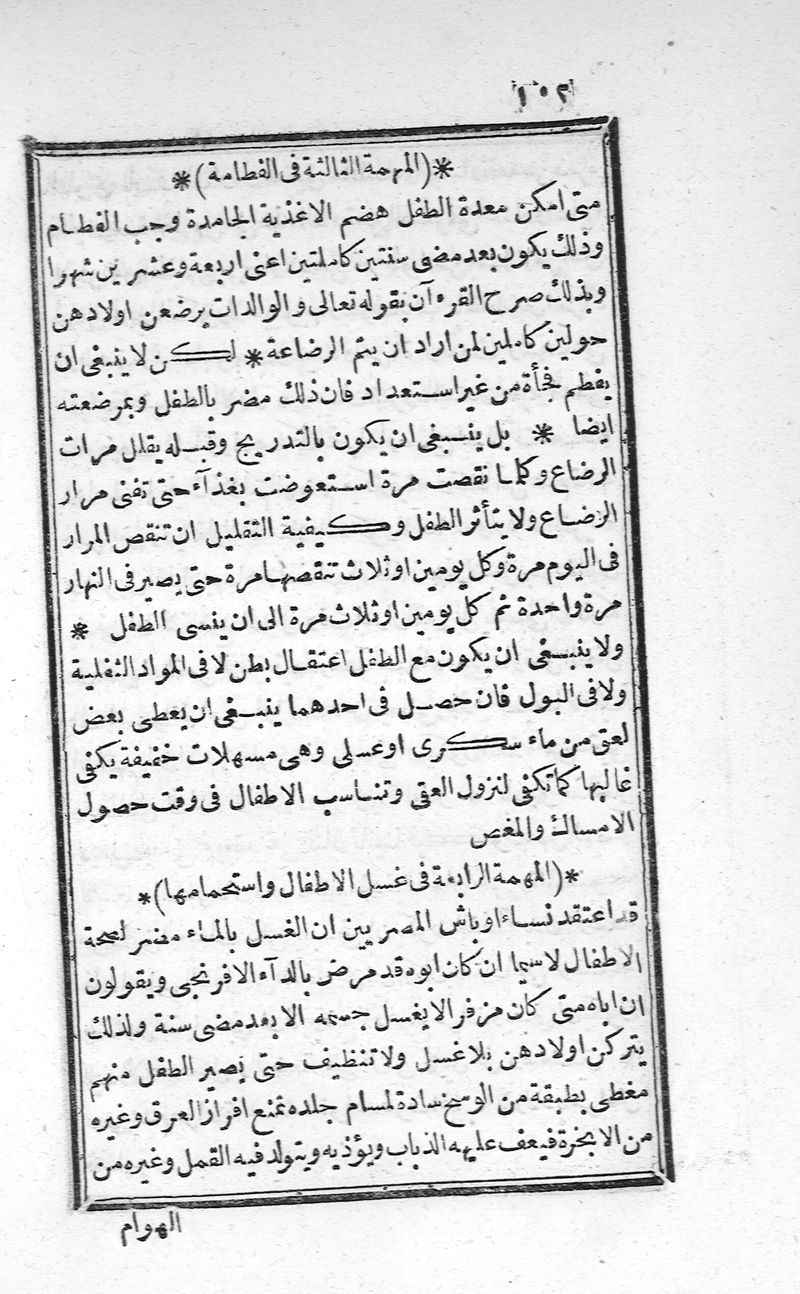 ١٥٢
*(المهمة الثالثة فى الفطامة)*
متى امكن معدة الطفل هضم الاغذية الجامدة وجب الفطام
وذلك يكون بعد مضى سنتين كاملتين اعنى اربعة وعشرين شهرا
وبذلك صرح القرءآن بقوله تعالى والوالدات يرضعن اولادهن
حولين كاملين لمن اراد ان يتم الرضاعة * لكن لا ينبغى ان
يفطم فجأة من غير استعداد فان ذلك مضر بالطفل وبمرضعته
ايضا * بل ينبغى ان يكون بالتدريج وقبله يقلل مرات
الرضاع وكلما نقصت مرة استعوضت بغذآء حتى تفنى مرار
الرضاع ولا يتأثر الطفل وكيفية التقليل ان تنقص المرار
فى اليوم مرة وكل يومين او ثلاث تنقصها مرة حتى يصير فى النهار
مرة واحدة ثم كل يومين او ثلاث مرة الى ان ينسى الطفل *
ولا ينبغى ان يكون مع الطفل اعتقال بطن لا فى المواد الثفلية
ولا فى البول فان حصل فى احدهما ينبغى ان يعطى بعض
لعق من ماء سكرى او عسلى وهى مسهلات خفيفة يكفى
غالبها كما تكفى لنزول العقى وتناسب الاطفال فى وقت حصول
الامساك والمغص
*(المهمة الرابعة فى غسل الاطفال واستحمامها)*
قد اعتقد نساء اوباش المصريين ان الغسل بالماء مضر لصحة
الاطفال لاسيما ان كان ابوه قد مرض بالدآء الافرنجى ويقولون
ان اباه متى كان مزفر الا يغسل جسمه الا بعد مضى سنة ولذلك
يتركن اولادهن بلا غسل ولا تنظيف حتى يصير الطفل منهم
مغطى بطبقة من الوسخ سادة لمسام جلده تمنع افراز العرق وغيره
من الابخرة فيعف عليه الذباب ويؤذيه ويتولد فيه القمل وغيره من
الهوام